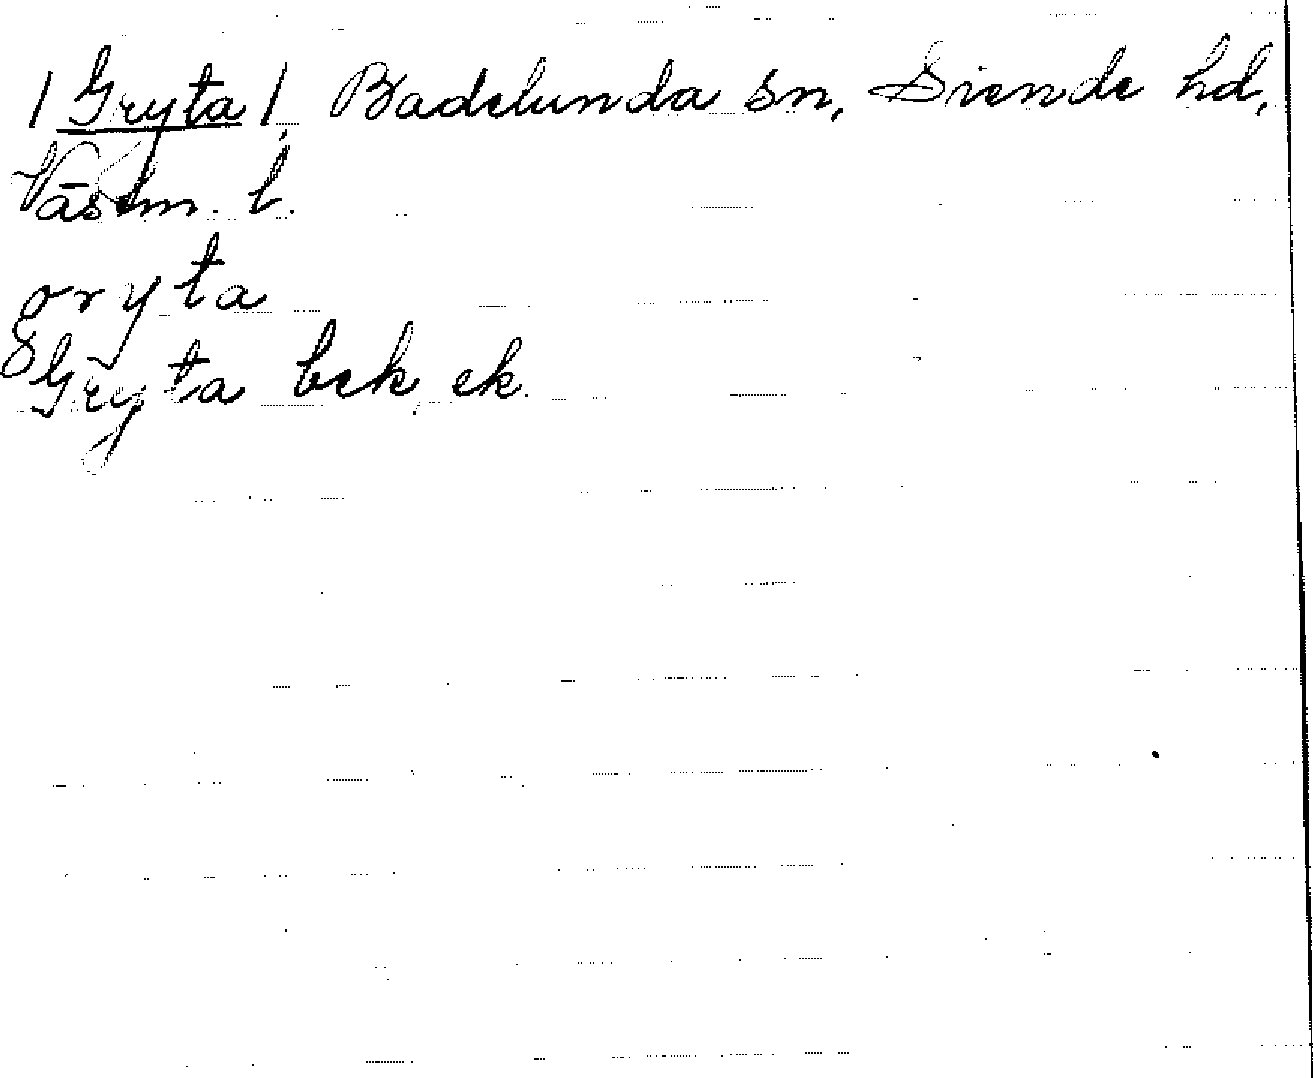 /Gryta/, Badelunda sn, Siende hd,
Västm. l.
gryta
Gryta bck, ek.